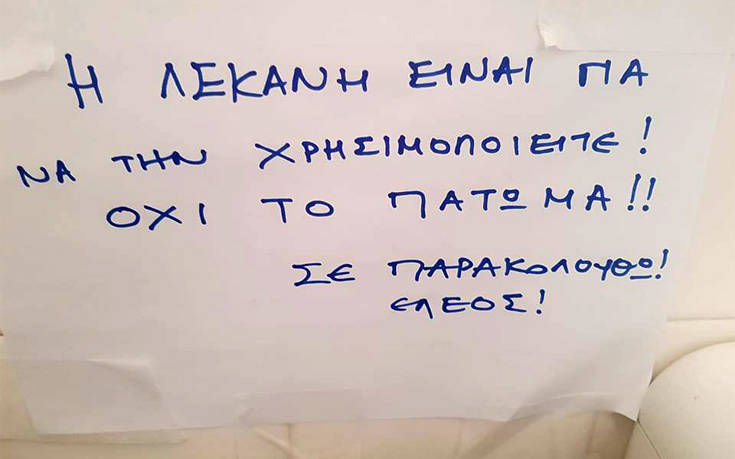 Η ΛΕΚΑΝΗ ΕΙΝΑΙ ΓΙΑ
ΝΑ ΤΗΝ ΧΡΗΣΙΜΟΠΟΙΕΙΤΕ!
ΟΧΙ ΤΟ ΠΑΤΩΜΑ!!
ΣΕ ΠΑΡΑΚΟΛΟΥΘΩ!
ΕΛΕΟΣ!